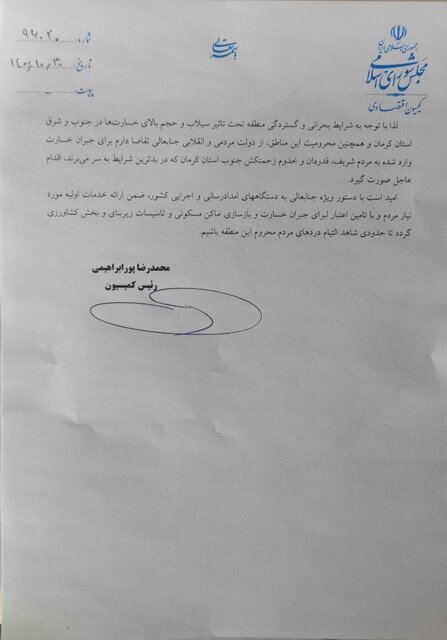 جمهوری اسلامی ایران
مجلس شورای اسلامی
کمیسیون اقتصادی
باسمه تعالی
شماره:
تاریخ
پیوست
لذا با توجه به شرایط بحرانی و گستردگی منطقه تحت تاثیر سیلاب و حجم بالای خسارت‌ها در جنوب و شرق
استان کرمان و همچنین محرومیت این مناطق، از دولت مردمی و انقلابی جنابعالی تقاضا دارم برای جبران خسارت
وارد شده به مردم شریف، قدردان و خدوم زحمتکش جنوب استان کرمان که در بدترین شرایط به سر می‌برند، اقدام
عاجل صورت گیرد.
امید است با دستور ویژه جنابعالی به دستگاههای امدادرسانی و اجرایی کشور، ضمن ارائه خدمات اولیه مورد
نیاز مردم و با تامین اعتبار لبرای جبران خسارت و بازسازی اماکن مسکونی و تاسیسات زیربنای و بخش کشاورزی
گردد تا حدودی شاهد التیام دردهای مردم محروم این منطقه باشیم.
محمدرضا پورابراهیمی
رئیس کمیسیون